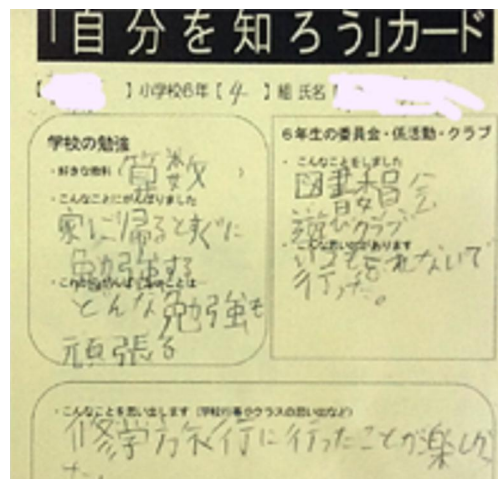 「自分を知ろう」カード
【 】小学校6年【4】組 氏名【
学校の勉強
・好きな教科（算数）
・こんなことにがんばりました
家に帰るとすぐに
勉強する
・これからがんばりたいことは
どんな勉強も
頑張る
6年生の委員会・係活動・クラブ
・こんなことをしました
図書
遊びクラブ
・こんな思い出があります
いつも忘れないで
行った。
・こんなことを思い出します（学校行事やクラスの思い出など）
修学旅行に行ったことが楽しかっ
た。